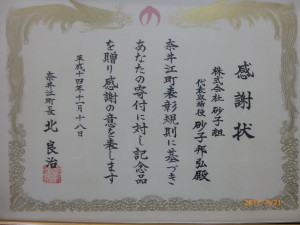 感謝状
株式会社 砂子組
代表取締役 砂子邦弘殿
奈井江町表彰規則に基づき
あなたの寄付に対し記念品
を贈り感謝の意を表します
平成十四年十一月十八日
奈井江町長 北良治